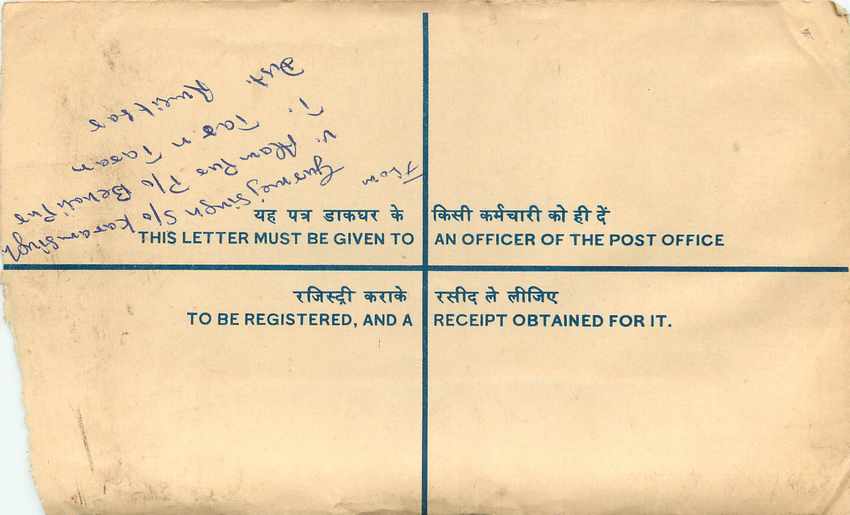 यह पत्र डाकघर के किसी कर्मचारी को ही दें
THIS LETTER MUST BE GIVEN TO AN OFFICER OF THE POST OFFICE
रजिस्ट्री कराके रसीद ले लीजिए
TO BE REGISTERED, AND A RECEIPT OBTAINED FOR IT.
From
Gurmej Singh S/o Karam Singh
V. Alam Pur P/o
T. Taran Taran
Dist. Amritsar